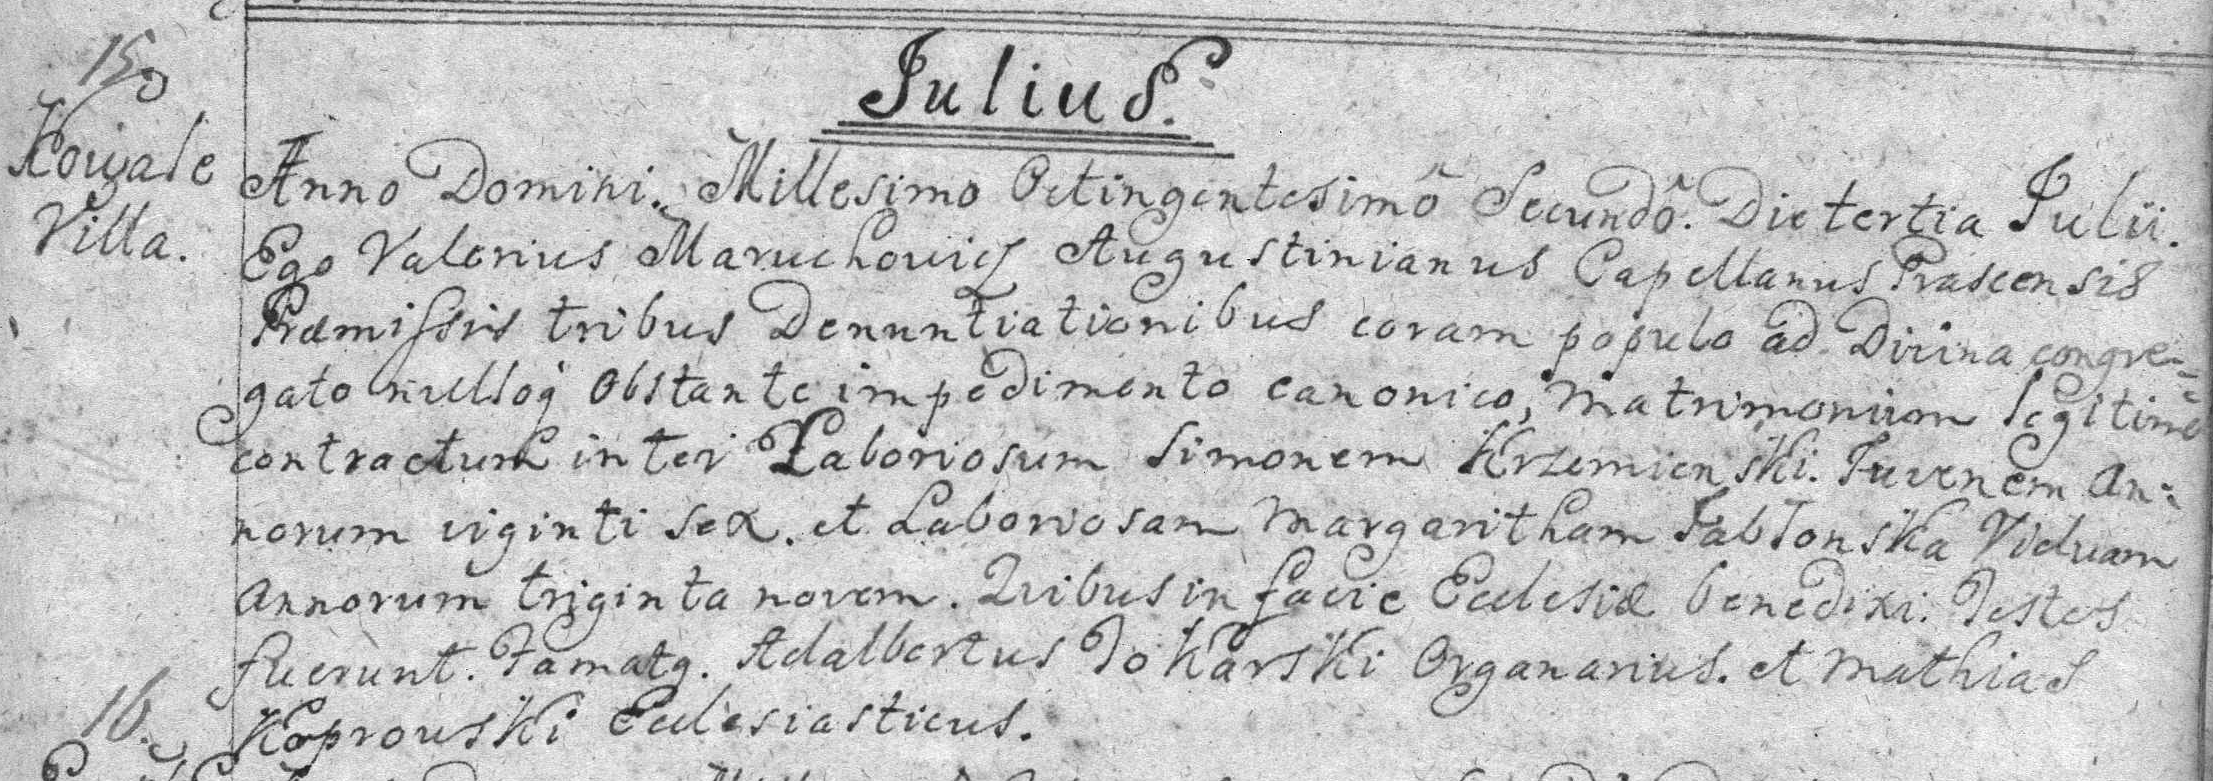 Julius.
15.
Kowale
Villa.
Anno Domini. Millesimo Octingentesimō Secundō. Die tertia Julii.
Ego Valerius Maruchowicz Augustinianus Capellanus Prascensis
Præmissis tribus Denuntiationibus coram populo ad Divina congre=
gato nulloq́ Obstante impedimento canonico, Matrimonium legitime
contractum inter Laboriosum Simonem Krzemienski. Juvenem An=
norum viginti sex. et Laboriosam Margaritham Jabłonska Viduam
Annorum triginta novem. Quibus in facie Ecclesiæ benedixi. Testes
fuerunt. Famatq. Adalbertus Tokarski Organarius. et Mathias
Koprowski Ecclesiasticus.
16.